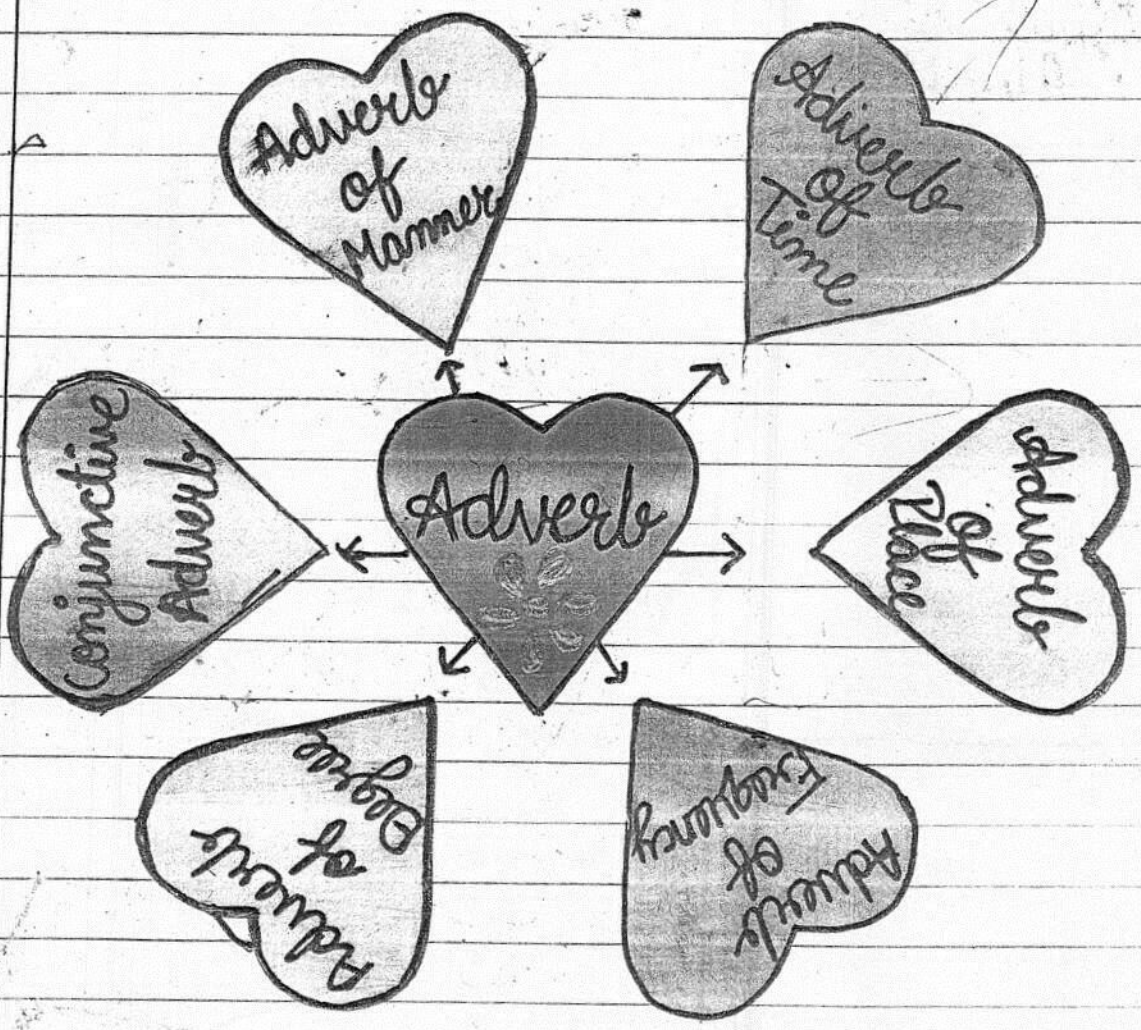 Adverb
of
Manner
Adiverb
of
Time
Conjunctive
Adverb
Adverb
Adverb
of
Place
Adverb
of
Degree
Adverb
of
Frequency